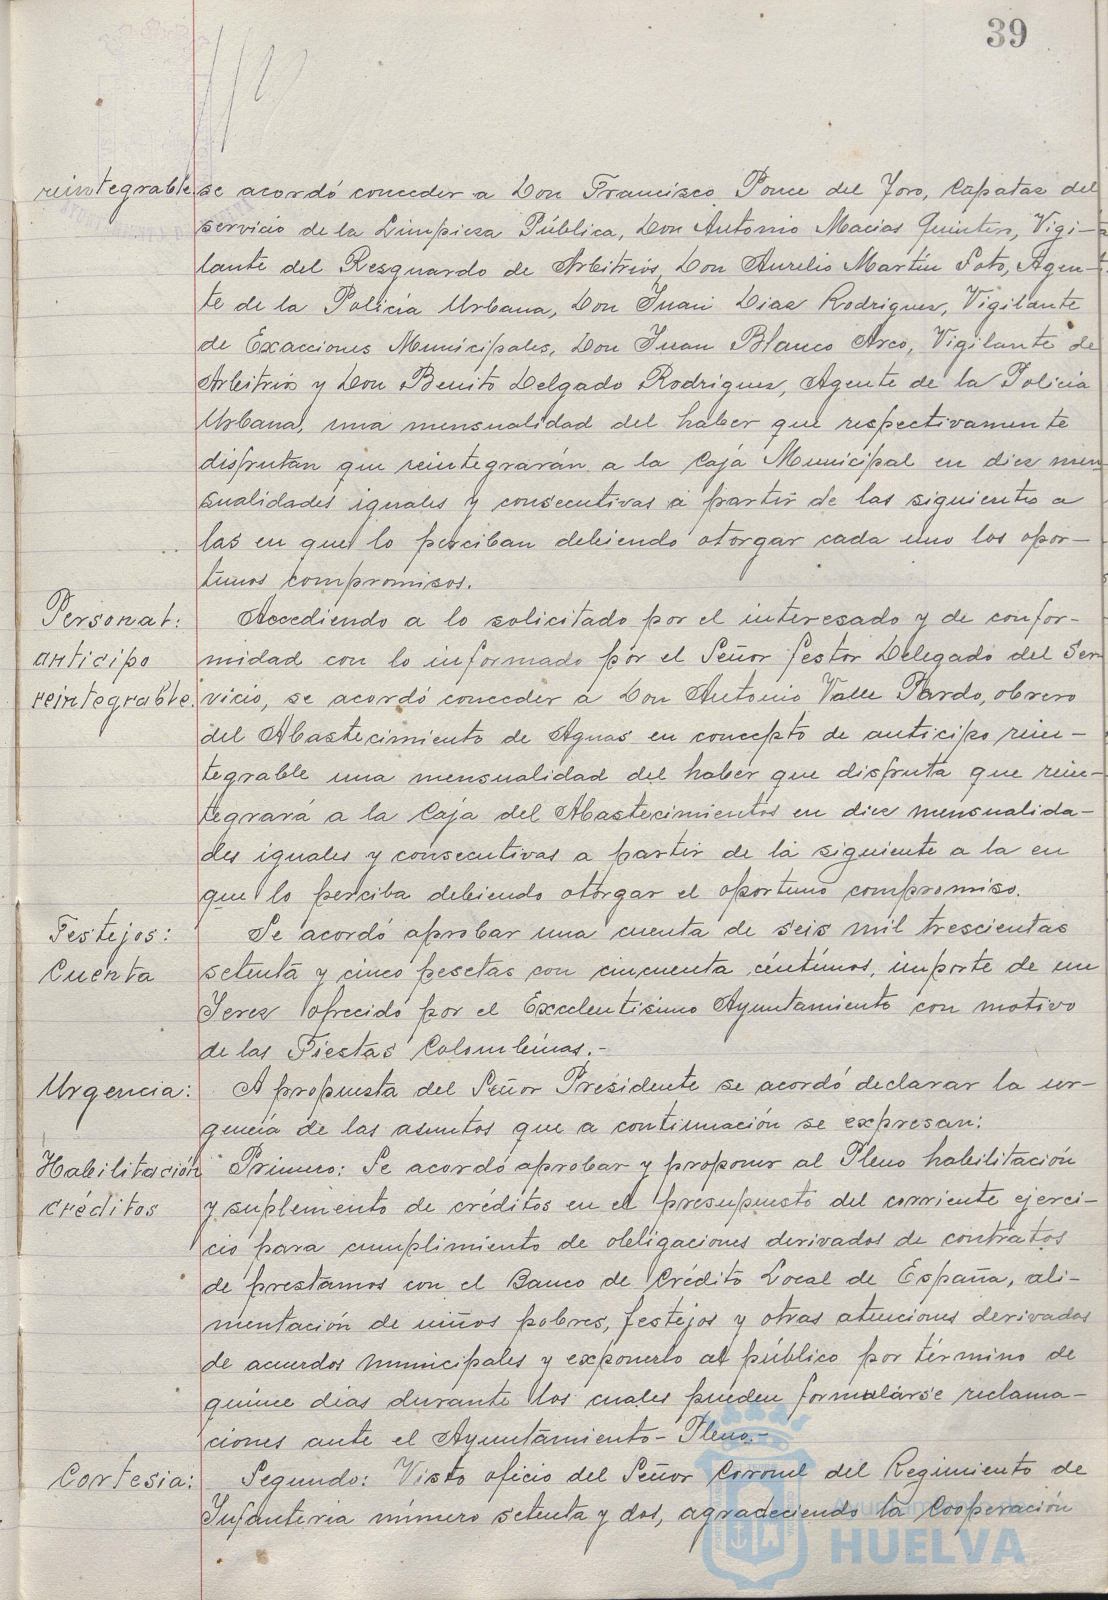 39
reintegrable. se acordó conceder a Don Francisco Ponce del Toro, Capataz del
servicio de la Limpieza Pública, Don Antonio Macías Quintero, Vigi-
lante del Resguardo de Arbitrios, Don Aurelio Martín Soto, Agen-
te de la Policía Urbana, Don Juan Diaz Rodriguez, Vigilante
de Exacciones Municipales, Don Juan Blanco Arco, Vigilante de
Arbitrios y Don Benito Delgado Rodriguez, Agente de la Policía
Urbana, una mensualidad del haber que respectivamente
disfrutan que reintegrarán a la Caja Municipal en diez men-
sualidades iguales y consecutivas a partir de las siguientes a
las en que lo perciban debiendo otorgar cada uno los opor-
tunos compromisos.
Personal: Accediendo a lo solicitado por el interesado y de confor-
anticipo midad con lo informado por el Señor Gestor Delegado del Ser-
reintegrable. vicio, se acordó conceder a Don Antonio Valle Pardo, obrero
del Abastecimiento de Aguas en concepto de anticipo rein-
tegrable una mensualidad del haber que disfruta que rein-
tegrará a la Caja del Abastecimientos en diez mensualida-
des iguales y consecutivas a partir de la siguiente a la en
que lo perciba debiendo otorgar el oportuno compromiso.
Festejos: Se acordó aprobar una cuenta de seis mil trescientas
Cuenta setenta y cinco pesetas con cincuenta céntimos, importe de un
Jerez ofrecido por el Excelentísimo Ayuntamiento con motivo
de las Fiestas Colombinas.-
Urgencia: A propuesta del Señor Presidente se acordó declarar la ur-
gencia de los asuntos que a continuación se expresan:
Habilitación Primero: Se acordó aprobar y proponer al Pleno habilitación
créditos y suplemento de créditos en el presupuesto del corriente ejerci-
cio para cumplimiento de obligaciones derivados de contratos
de prestamos con el Banco de Crédito Local de España, ali-
mentación de niños pobres, festejos y otras atenciones derivados
de acuerdos municipales y exponerlo al público por término de
quince días durante los cuales pueden formularse reclama-
ciones ante el Ayuntamiento-Pleno.-
Cortesia: Segundo: Visto oficio del Señor Coronel del Regimiento de
Infanteria número setenta y dos, agradeciendo la Cooperación
Ayuntamiento de
HUELVA